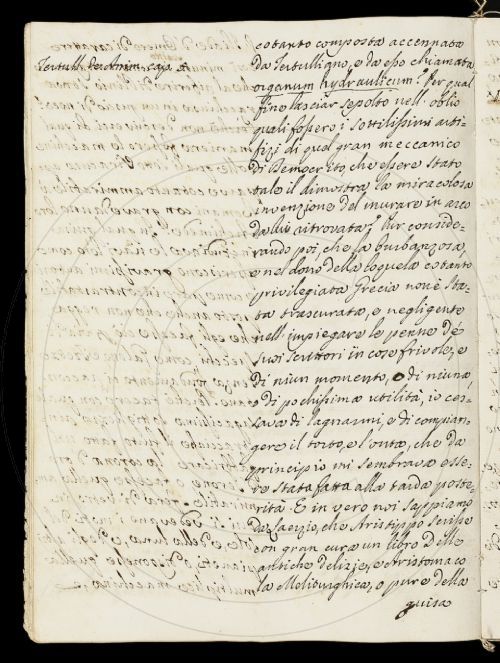 Tertull. de Anim. cap.
cotanto composta accennata
da Tertulligno, e da esso chiamata
organum hydraulicum? Per qual
fine lasciar sepolto nell' oblio
quali fossero i sottilissimi arti-
fizi di quel gran meccanico
di Democrito, che essere stato
tale il dimostra la miracolosa
invenzione del murare in arco
da lui ritrovata? Pur conside-
rando poi, che la burbanzosa,
e nel dono della loquela cotanto
privilegiata Grecia non è sta-
ta trascurata, e negligente
nell' impiegare le penne de'
suoi scrittori in cose frivole, e
di niun momento, o di niuna,
o di pochissima utilità, io ces-
sava di lagnarmi, e di compian-
gere il torto, e l'onta, che da
principio mi sembrava esse-
re stata fatta alla tarda poste-
rità. E in vero noi sappiamo
da Laerzio, che Aristippo scrisse
con gran cura un libro delle
antiche delizie, e Aristomaco
la Meliturghica, o pure della
guisa